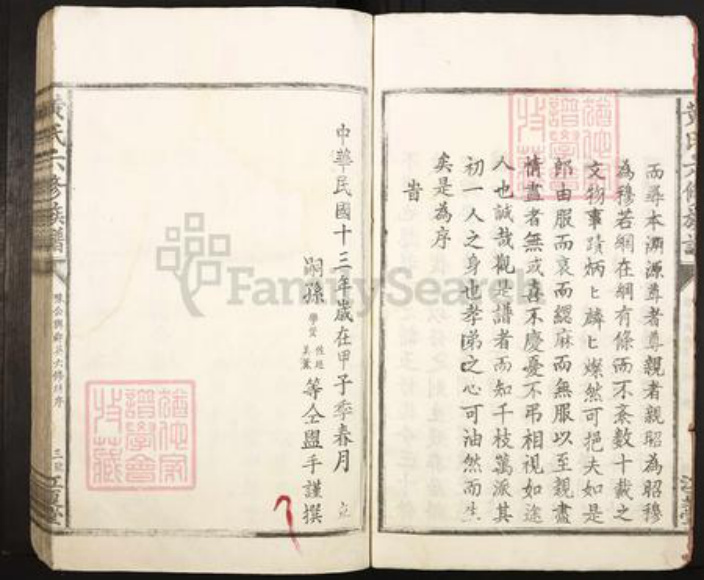 黃氏六修族譜
而尋本溯源尊者尊親者親昭為昭穆
為穆若綱在綱有條而不紊數十載之
文物事蹟炳匕麟匕燦然可挹夫如是
即由服而衰而緦麻而無服以至親盡
情盡者無或喜不慶憂不弔相視如途
人也誠哉觀是譜者而知千枝萬派其
初一人之身也孝弟之心可油然而生
矣是為序
旹
中華民國十三年歲在甲子季春月 立
嗣孫 等仝盥手謹撰
黃氏六修族譜
FamilySearch